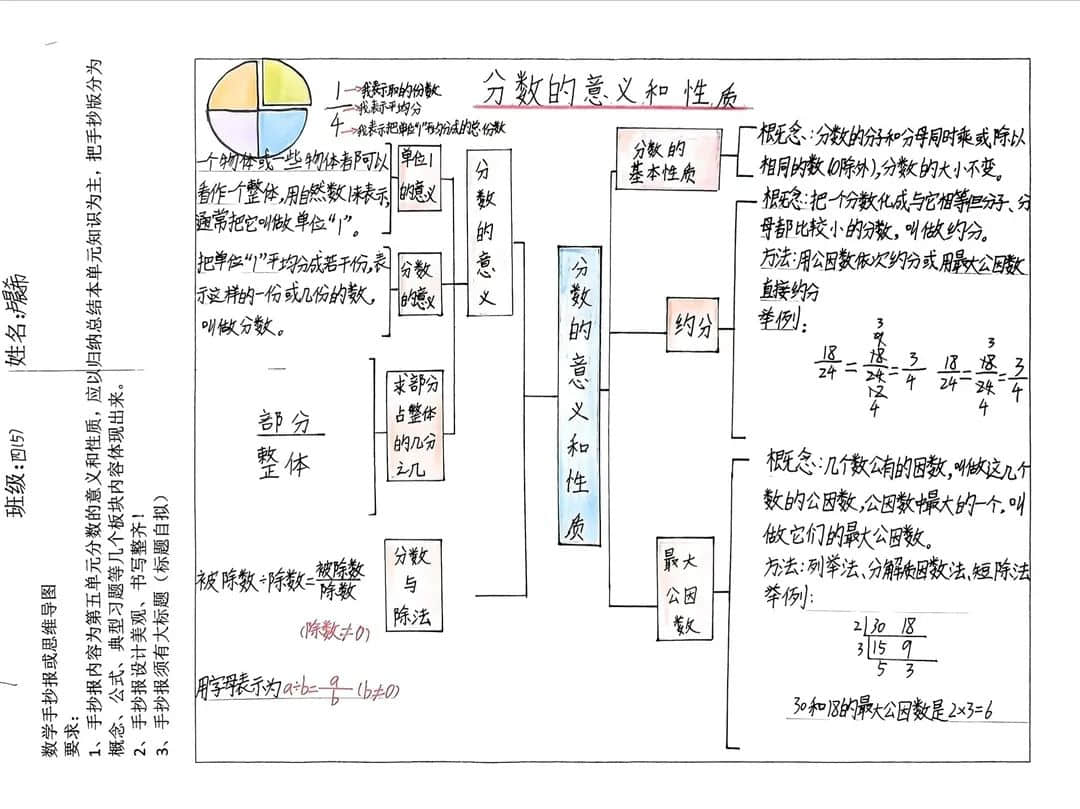 数学手抄报或思维导图
要求：
1、手抄报内容为第五单元分数的意义和性质，应以归纳总结本单元知识为主，把手抄版分为
概念、公式、典型习题等几个板块内容体现出来。
2、手抄报设计美观、书写整齐！
3、手抄报须有大标题（标题自拟）
班级:四(5)
姓名:卢晨希
分数的意义和性质
1→我表示取的份数
—→我表示平均分
4→我表示把单位“1”平均分成的总份数
分数的意义
单位1
的意义
一个物体或一些物体者都可以
看作一个整体,用自然数1来表示,
通常把它叫做单位“1”。
分数
的意义
把单位“1”平均分成若干份,表
示这样的一份或几份的数,
叫做分数。
求部分
占整体
的几分
之几
部分
整体
分数
与
除法
被除数÷除数=被除数/除数
(除数≠0)
用字母表示为a÷b=a/b (b≠0)
分数的意义和性质
分数的
基本性质
概念:分数的分子和分母同时乘或除以
相同的数(0除外),分数的大小不变。
约分
概念:把一个分数化成与它相等但分子、分
母都比较小的分数,叫做约分。
方法:用公因数依次约分或用最大公因数
直接约分
举例:
3
9
18/24=18/24=3/4
12
4
3
18/24=18/24=3/4
4
最大
公因
数
概念:几个数公有的因数,叫做这几个
数的公因数,公因数中最大的一个,叫
做它们的最大公因数。
方法:列举法、分解质因数法、短除法
举例:
2 30 18
3 15 9
5 3
30和18的最大公因数是2×3=6